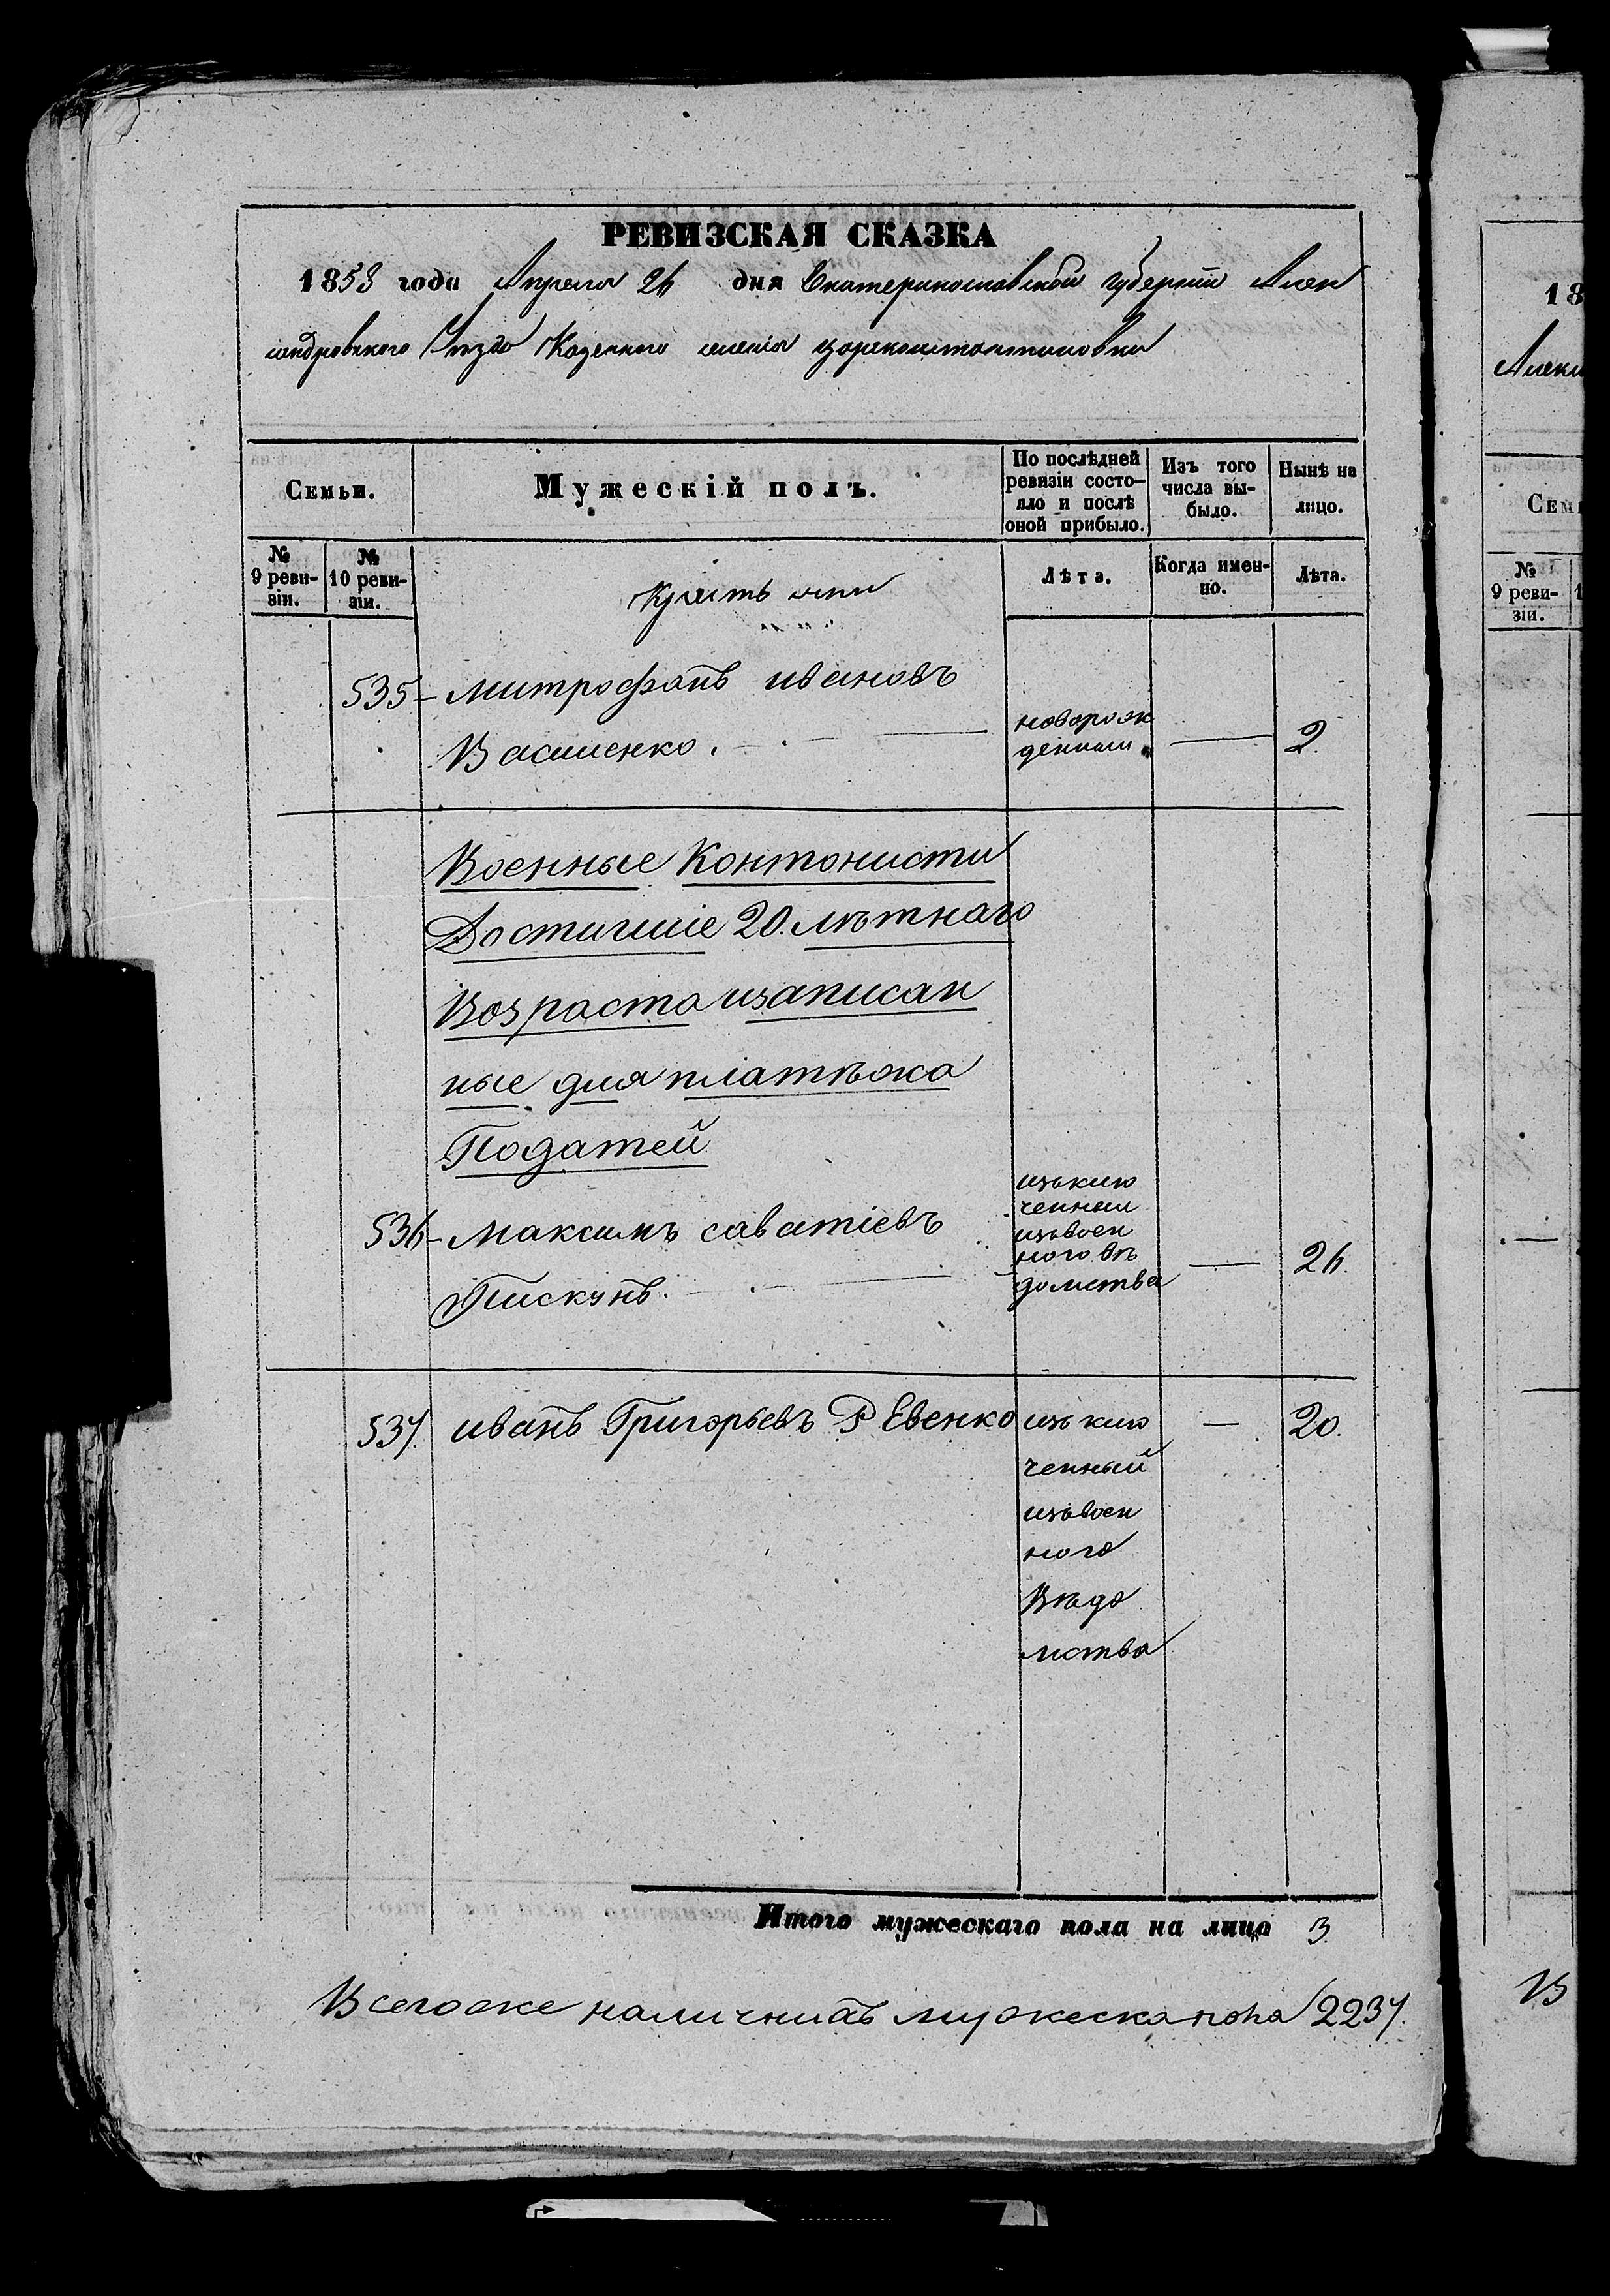 РЕВИЗСКАЯ СКАЗКА
1858 года Апреля 26 дня Екатеринославской губерніи Алек
сандровского Уезда Казенного селенія цареконстантиновки
Семьи.
Мужескій полъ.
По послѣдней ревизіи состо-
яло и послѣ
оной прибыло.
Изъ того
числа вы-
было.
Нынѣ на
лицо.
№
9 реви-
зіи.
№
10 реви-
зіи.
Лѣта.
Когда имен-
но.
Лѣта.
535 – митрофанъ ивановъ
Василенко.
новорож
денный
2
Военные Контонисти
Достигшіе 20. лѣтнаго
Возраста изаписан
ные для платѣжа
Податей
536 – максимъ саватіевъ
Пискунъ.
изклю
ченный
извоен
ного вѣ
домства
26.
537. иванъ Григорьевъ РЕвенко
изъклю
ченный
извоен
ного
Вѣдо
мства
20.
Итого мужескаго пола на лицо 3
Всегоже наличнихъ мужеска пола 2237.
18
Алекса
Сем
№
9 реви-
зіи.
1
В